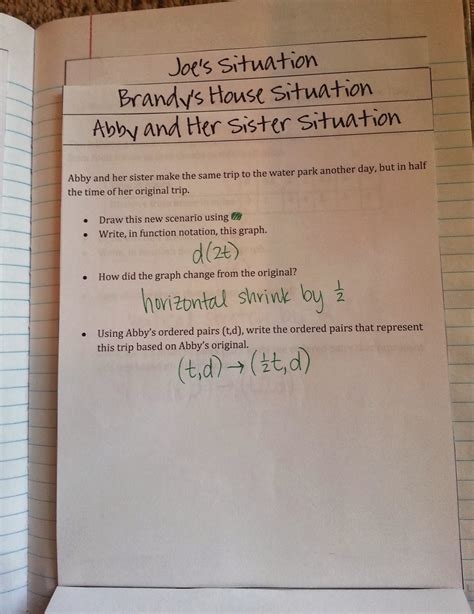 Joe's Situation
Brandy's House Situation
Abby and Her Sister Situation
Abby and her sister make the same trip to the water park another day, but in half
the time of her original trip.
• Draw this new scenario using
• Write, in function notation, this graph.
d(2t)
• How did the graph change from the original?
horizontal shrink by 1/2
• Using Abby's ordered pairs (t,d), write the ordered pairs that represent
this trip based on Abby's original.
(t,d) → (1/2t,d)